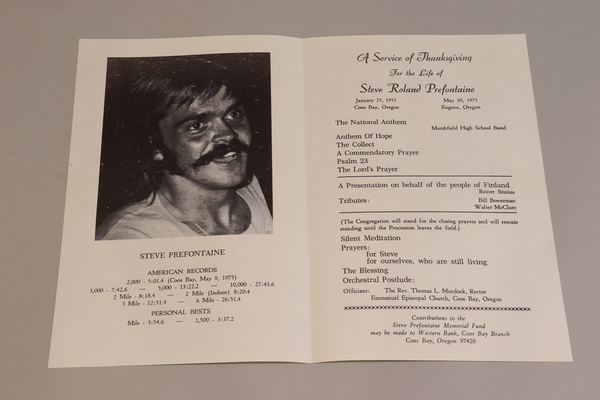 STEVE PREFONTAINE
AMERICAN RECORDS
2,000 - 5:01.4 (Coos Bay, May 9, 1975)
3,000 - 7:42.6 — 5,000 - 13:22.2 — 10,000 - 27:43.6
2 Mile - 8:18.4 — 2 Mile (Indoor) 8:20.4
3 Mile - 12:51.4 — 6 Mile - 26:51.4
PERSONAL BESTS
Mile - 3:54.6 — 1,500 - 3:37.2
A Service of Thanksgiving
For the Life of
Steve Roland Prefontaine
January 25, 1951 May 30, 1975
Coos Bay, Oregon Eugene, Oregon
The National Anthem
Marshfield High School Band
Anthem Of Hope
The Collect
A Commendatory Prayer
Psalm 23
The Lord's Prayer
A Presentation on behalf of the people of Finland
Reiner Stinius
Tributes: Bill Bowerman
Walter McClure
(The Congregation will stand for the closing prayers and will remain
standing until the Procession leaves the field.)
Silent Meditation
Prayers:
for Steve
for ourselves, who are still living
The Blessing
Orchestral Postlude:
Officiant: The Rev. Thomas L. Murdock, Rector
Emmanuel Episcopal Church, Coos Bay, Oregon
Contributions to the
Steve Prefontaine Memorial Fund
may be made to Western Bank, Coos Bay Branch
Coos Bay, Oregon 97420